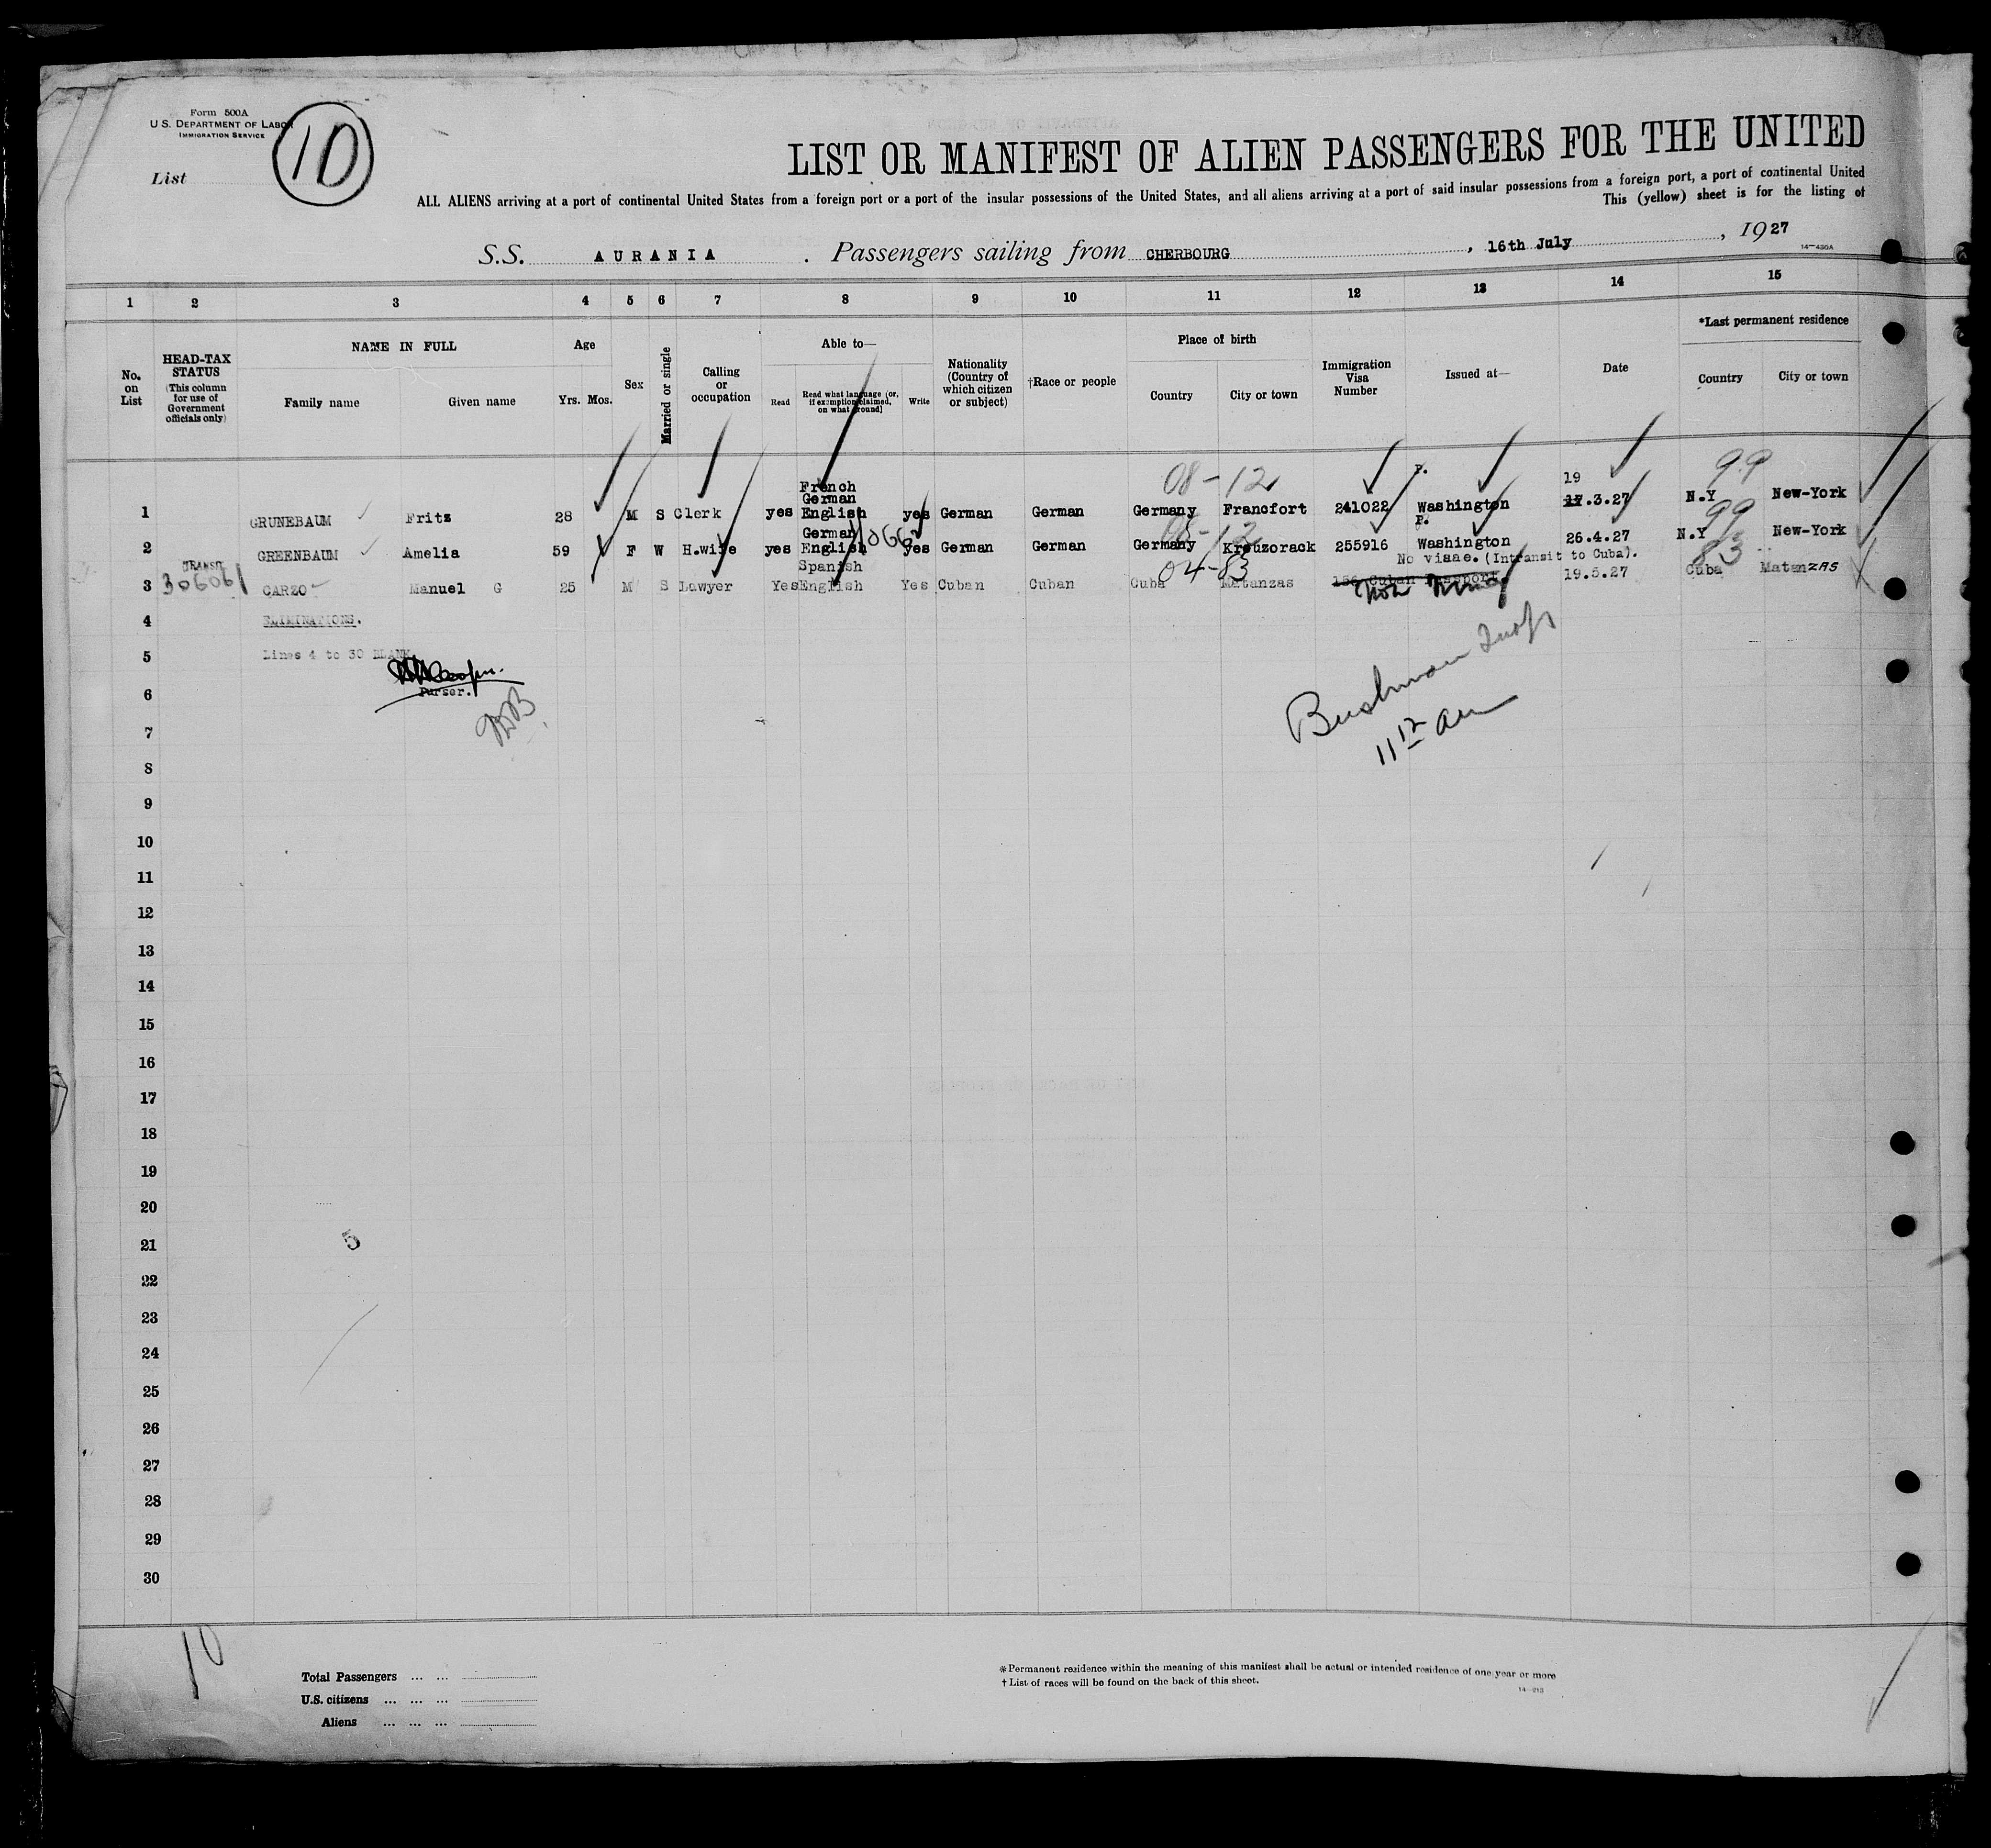 Form 500A
U.S. DEPARTMENT OF LABOR
IMMIGRATION SERVICE
10
List
LIST OR MANIFEST OF ALIEN PASSENGERS FOR THE UNITED
ALL ALIENS arriving at a port of continental United States from a foreign port or a port of the insular possessions of the United States, and all aliens arriving at a port of said insular possessions from a foreign port, a port of continental United
This (yellow) sheet is for the listing of
S.S. AURANIA . Passengers sailing from CHERBOURG , 16th July , 1927
14—430A
1 2 3 4 5 6 7 8 9 10 11 12 13 14 15
No. on List
HEAD-TAX STATUS (This column for use of Government officials only)
NAME IN FULL
Family name Given name
Age
Yrs. Mos.
Sex
Married or single
Calling or occupation
Able to—
Read
Read what language (or, if exemption claimed, on what ground)
Write
Nationality (Country of which citizen or subject)
†Race or people
Place of birth
Country City or town
Immigration Visa Number
Issued at—
Date
*Last permanent residence
Country City or town
08-12 P. 19 99
French
German
1 GRUNEBAUM Fritz 28 M S Clerk yes English yes German German Germany Francfort 241022 Washington 17.3.27 N.Y New-York
08-12 P. 99
German
2 GREENBAUM Amelia 59 F W H.wife yes English yes German German Germany Kreuzorack 255916 Washington 26.4.27 N.Y New-York
TRANSIT Spanish 04-83 No visae. (Intransit to Cuba). 83
3 306061 CARZO Manuel G 25 M S Lawyer Yes English Yes Cuban Cuban Cuba Matanzas 156 Cuban Passport. 19.5.27 Cuba Matanzas
4 ELIMINATIONS.
5 Lines 4 to 30 BLANK
6 Purser.
7
8
9
10
11
12
13
14
15
16
17
18
19
20
21 5
22
23
24
25
26
27
28
29
30
Bushman
11 12 am
10
Total Passengers ... ...
U.S. citizens ... ... ...
Aliens ... ... ...
*Permanent residence within the meaning of this manifest shall be actual or intended residence of one year or more
† List of races will be found on the back of this sheet.
14—213